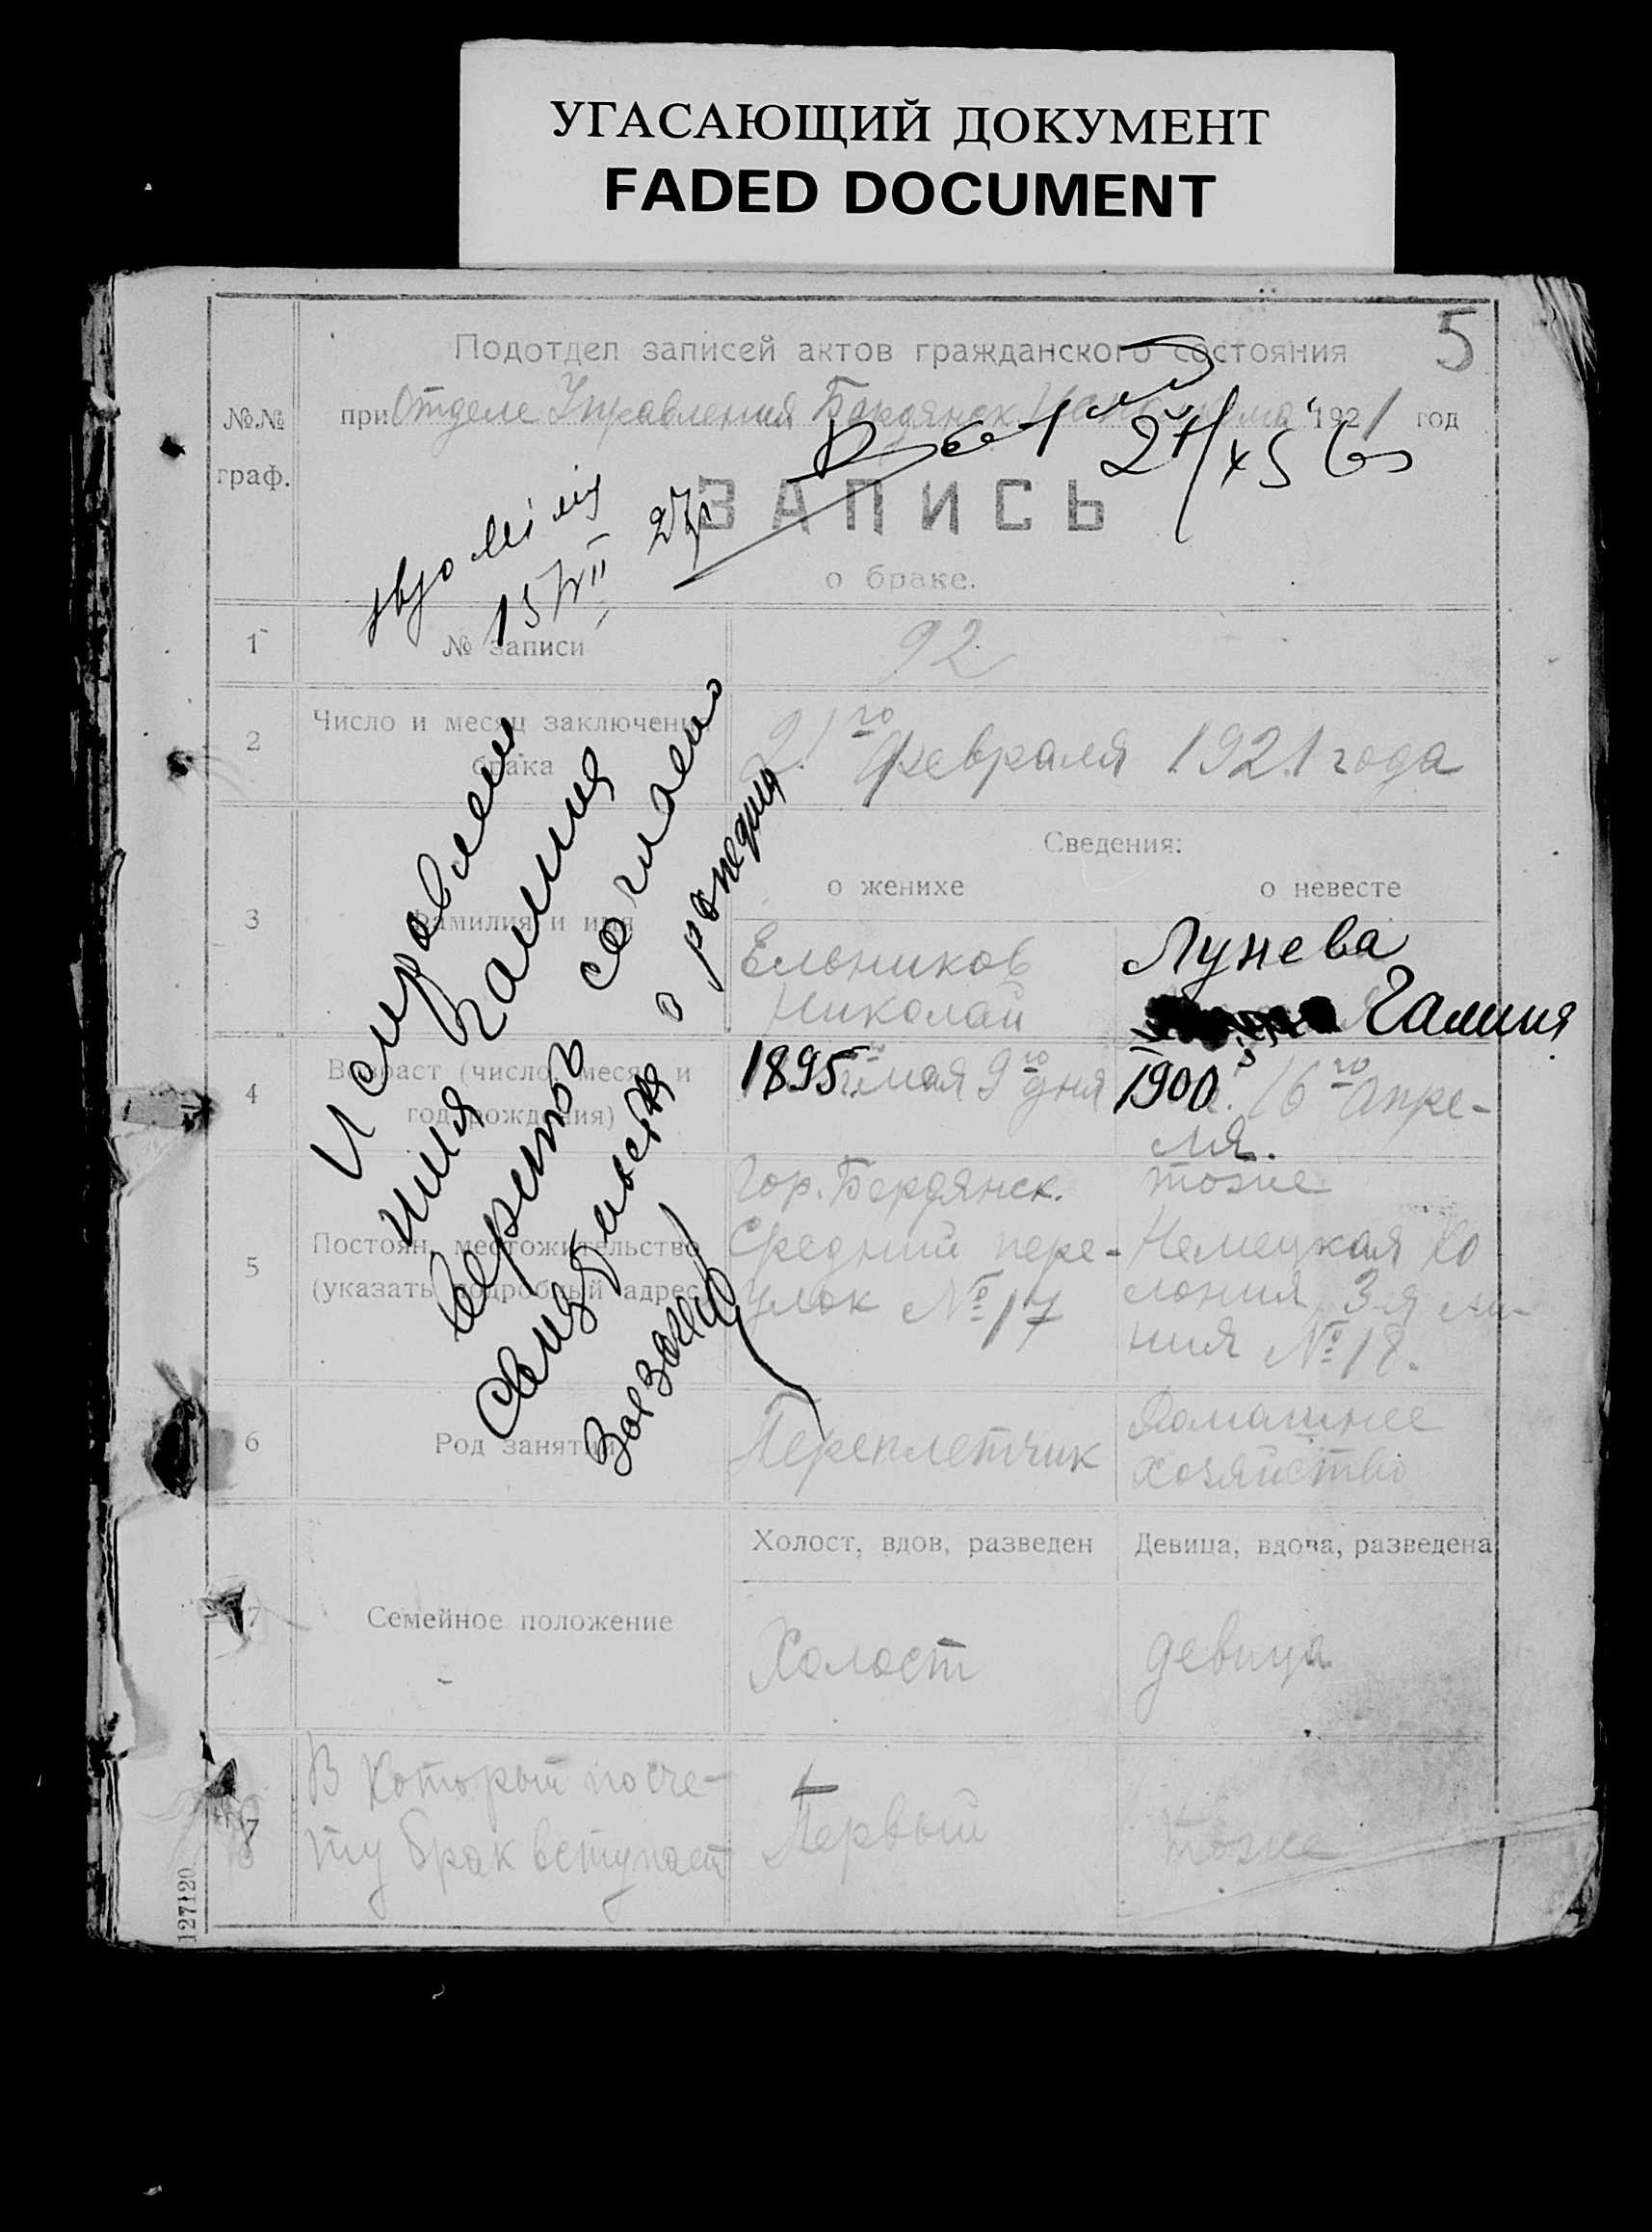 УГАСАЮЩИЙ ДОКУМЕНТ
FADED DOCUMENT
5
Подотдел записей актов гражданского состояния
№№ граф.
при Отделе Управления Бердянск. 1921 год
ЗАПИСЬ
о браке.
1 № записи 92
2 Число и месяц заключения брака
21го февраля 1921 года
Сведения:
о женихе о невесте
3 Фамилия и имя
Ельников Лунева
Николай Галина
4 Возраст (число, месяц и год рождения)
1895 мая 9го дня
1900 16го Апре-
ля.
5 Постоян. местожительство (указать подробный адрес)
Гор. Бердянск.
Средний пере-
улок № 17
тоже
Немецкая Ко
лония 3-я ли-
ния № 18.
6 Род занятий
Переплетчик
Домашнее
хозяйство
Холост, вдов, разведен Девица, вдова, разведена
7 Семейное положение
Холост девица
В который по сче-
ту брак вступает
Первый тоже
127120
Исправлено
имя Галина
согласно
о рождении